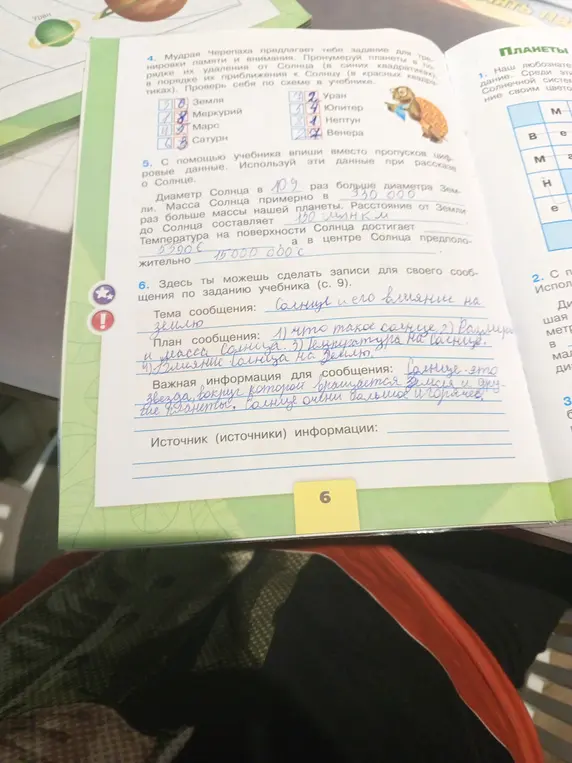 Уран
4. Мудрая Черепаха предлагает тебе задание для тре-
нировки памяти и внимания. Пронумеруй планеты в по-
рядке их удаления от Солнца (в синих квадратиках),
в порядке их приближения к Солнцу (в красных квадра-
тиках). Проверь себя по схеме в учебнике.
Земля
Меркурий
Марс
Сатурн
2 Уран
Юпитер
1 Нептун
7 Венера
5. С помощью учебника впиши вместо пропусков циф-
ровые данные. Используй эти данные при рассказе
о Солнце.
Диаметр Солнца в 109 раз больше диаметра Зем-
ли. Масса Солнца примерно в 330 000
раз больше массы нашей планеты. Расстояние от Земли
до Солнца составляет 150 млн км
Температура на поверхности Солнца достигает
, а в центре Солнца предполо-
жительно 15000 000 с
6. Здесь ты можешь сделать записи для своего сооб-
щения по заданию учебника (с. 9).
Тема сообщения: Солнце и его влияние на
землю
План сообщения: 1) что такое солнце 2) Размер
и масса Солнца. 3) Температура на Солнце.
4) Влияние Солнца на Землю.
Важная информация для сообщения: Солнце-это
звезда, вокруг которой вращается Земля и дру-
гие планеты. Солнце очень большое и горячее.
Источник (источники) информации:
6
ПЛАНЕТЫ
1. Наш любознате
дание. Среди эти
Солнечной систе
ние своим цвето
М
В е
М а
Н
е
2. С п
Испол
Ди
шая
метр
в
мал
ди
3